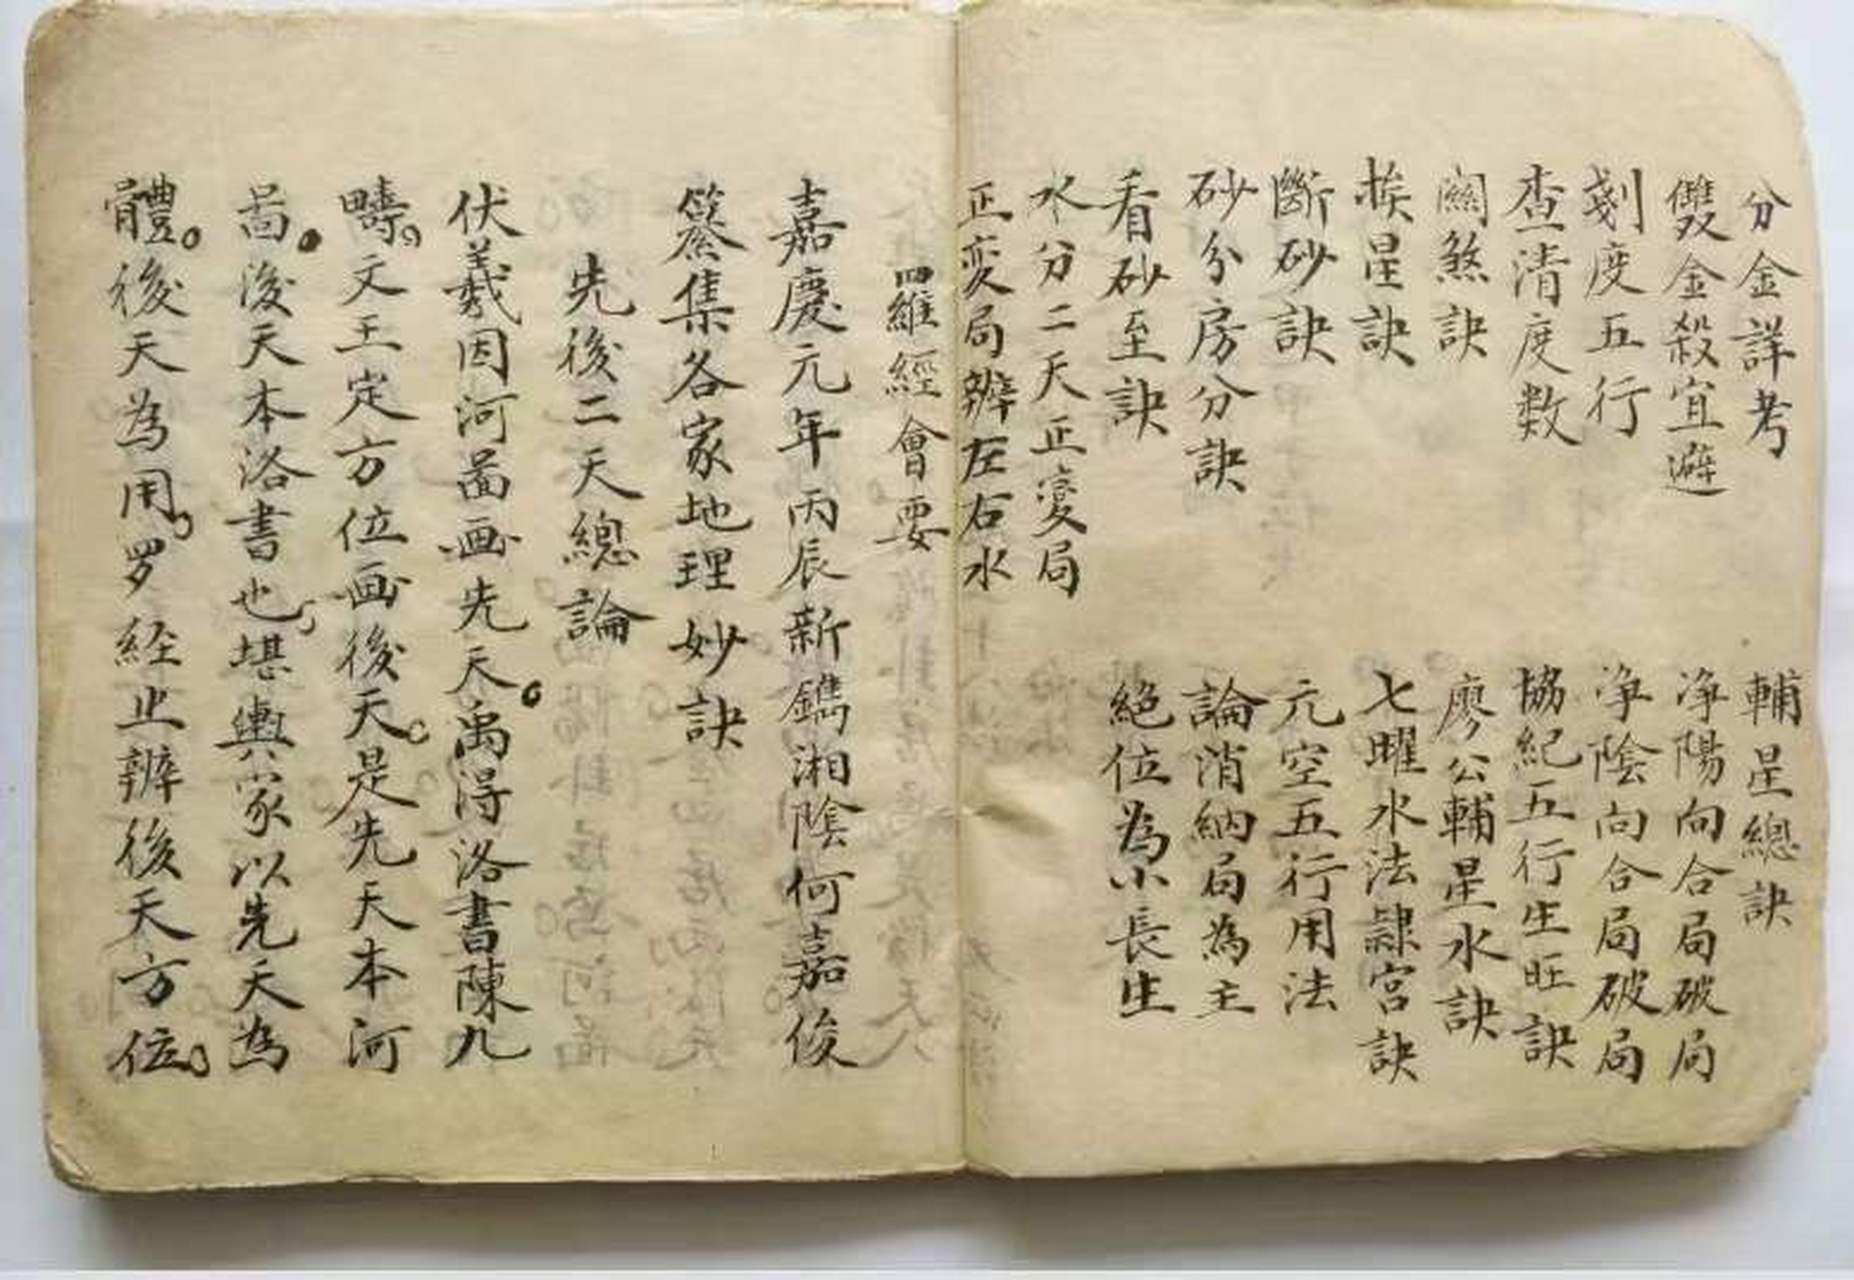 分金詳考
雙金殺宜避
刻度五行
查清度数
關煞訣
挨星訣
斷砂訣
砂分房分訣
看砂至訣
水分二天正变局
正変局辨左右水
輔星總訣
净陽向合局破局
净陰向合局破局
協紀五行生旺訣
廖公輔星水訣
七曜水法隸宮訣
元空五行用法
論消納局為主
絕位為小長生
羅經會要
嘉慶元年丙辰新鐫湘陰何嘉俊
纂集各家地理妙訣
先後二天總論
伏羲因河啚画先天。禹得洛書陳九
疇，文王定方位画後天。是先天本河
啚。後天本洛書也，堪輿家以先天為
體。後天為用，罗経止辨後天方位。